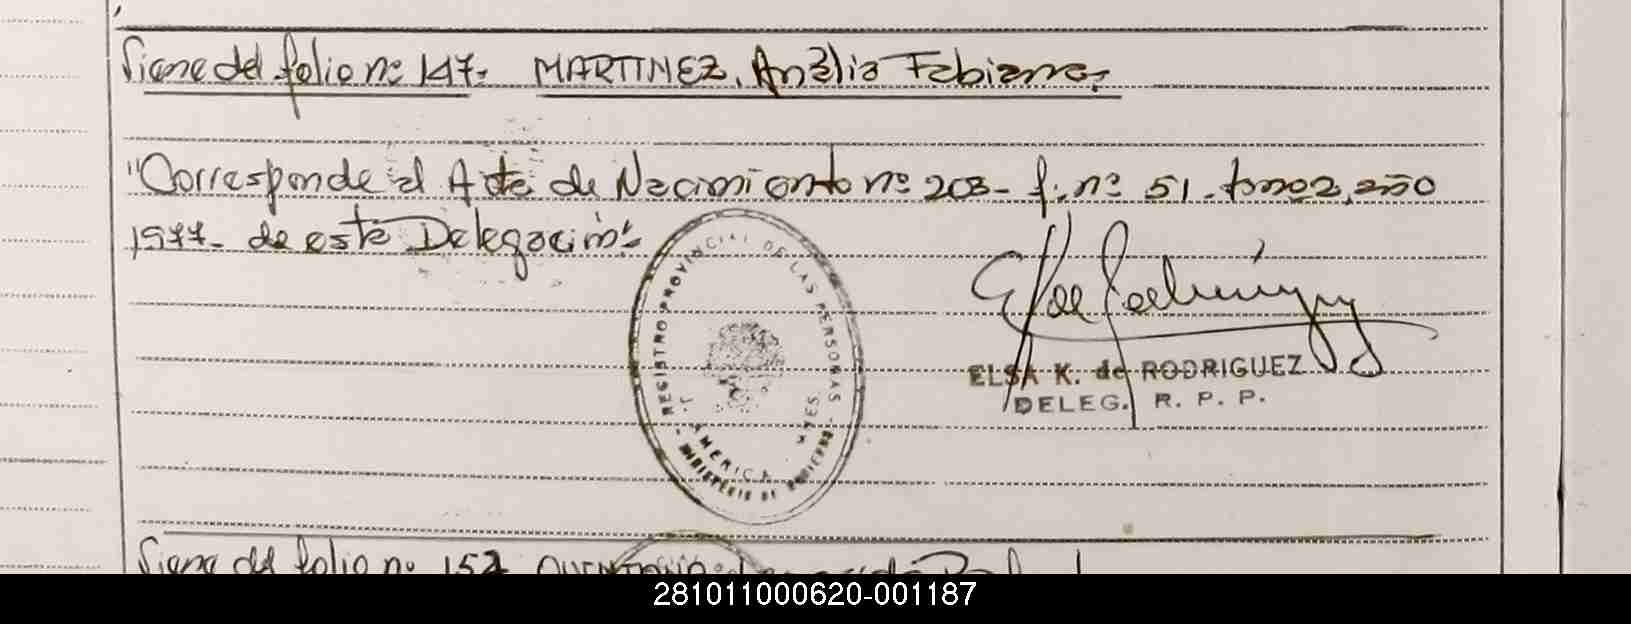 Viene del folio nº 147. MARTINEZ, Anália Fabiana.
"Corresponde al Acta de Nacimiento nº 203- f. nº 51. tomo 2, año
1977- de esta Delegación".
REGISTRO PROVINCIAL DE LAS PERSONAS
AMERICA
MINISTERIO DE GOBIERNO
ELSA K. de RODRIGUEZ
DELEG. R. P. P.
Viene del folio nº 152
281011000620-001187